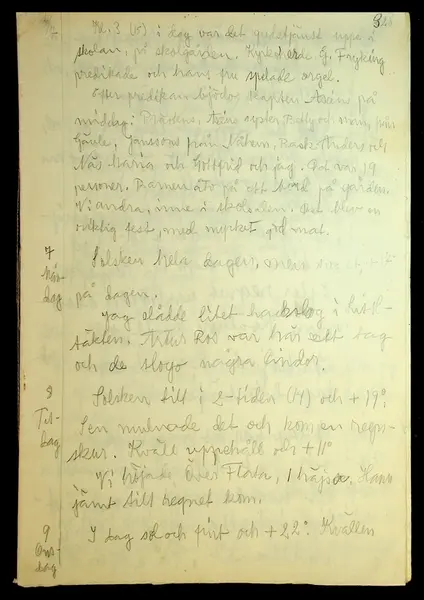 Kl. 3 (15) i dag var det gudstjänst uppe i
skolan, på skolgården. Kyrkoherde G. Fryking
predikade och hans fru spelade orgel.
Efter predikan bjödos kapten Axéns på
middag: syster och min, från
Gävle, Janssons från Näken, Back-Anders och
Näs Maria och Gottfrid och jag. Det var 19
personer. Barnen åto på ett bord på gården.
Vi andra, inne i skolsalen. Det blev en
riktig fest, med mycket god mat.
7
Mån-
dag
Solsken hela dagen,
på dagen.
Jag slådde litet hackslog i
täkten. Artur Ros var här ett tag
och de slogo några lindor.
8
Tis-
dag
Solsken till i 2-tiden (14) och + 19°.
Sen mulnade det och kom en regn-
skur. Kväll uppehåll och + 11°
Vi höjade Över Flata, 1 häsja. Hann
jämt till regnet kom.
9
Ons-
dag
I dag sol och fint och + 22°. Kvällen